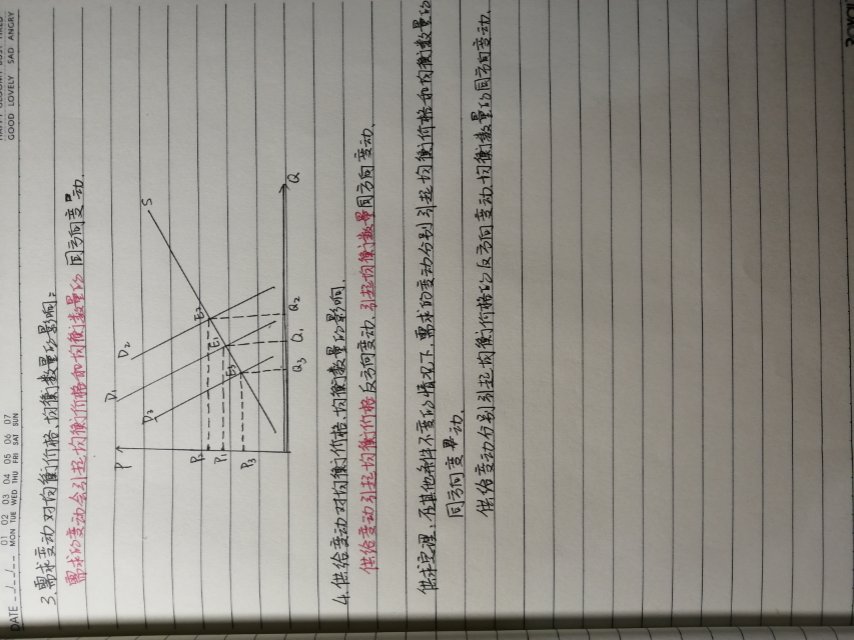 GOOD LOVELY SAD ANGRY
DATE 01 02 03 04 05 06 07
MON TUE WED THU FRI SAT SUN
3.需求变动对均衡价格、均衡数量的影响:
需求的变动会引起均衡价格和均衡数量的同方向变动.
P
D1
D2
D3
S
P2
E2
P1
E1
P3
E3
Q3
Q1
Q2
Q
4.供给变动对均衡价格.均衡数量的影响.
供给变动引起均衡价格反方向变动.引起均衡数量同方向变动.
供求定理,在其他条件不变的情况下,需求的变动分别引起均衡价格和均衡数量的
同方向变动.
供给变动分别引起均衡价格的反方向变动.均衡数量的同方向变动.